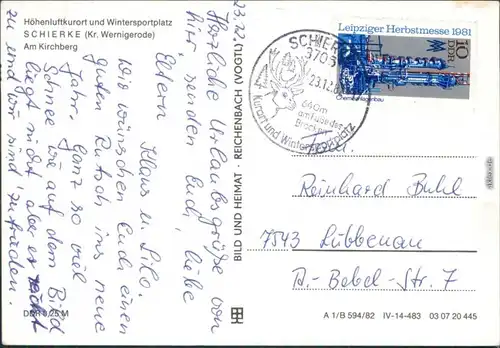 Höhenluftkurort und Wintersportplatz
SCHIERKE (Kr. Wernigerode)
Am Kirchberg
23.12.
Herzliche Urlaubsgrüße von
hier senden Euch, liebe
Eltern
Klaus u. Lilo.
Wir wünschen Euch einen
guten Rutsch ins neue
Jahr. Ganz so viel
Schnee wie auf dem Bild
liegt nicht aber es reicht
zu und wir sind zufrieden.
DDR 0,25 M
BILD UND HEIMAT · REICHENBACH (VOGTL)
SCHIERKE
3706
23.12.
640m
am Fuße des
Brockens
Kurort und Wintersportplatz
Leipziger Herbstmesse 1981
10
DDR
Chemieanlagenbau
Fam.
Reinhard Buhl
7543 Lübbenau
A.-Bebel-Str. 7
A 1/B 594/82 IV-14-483 03 07 20 445